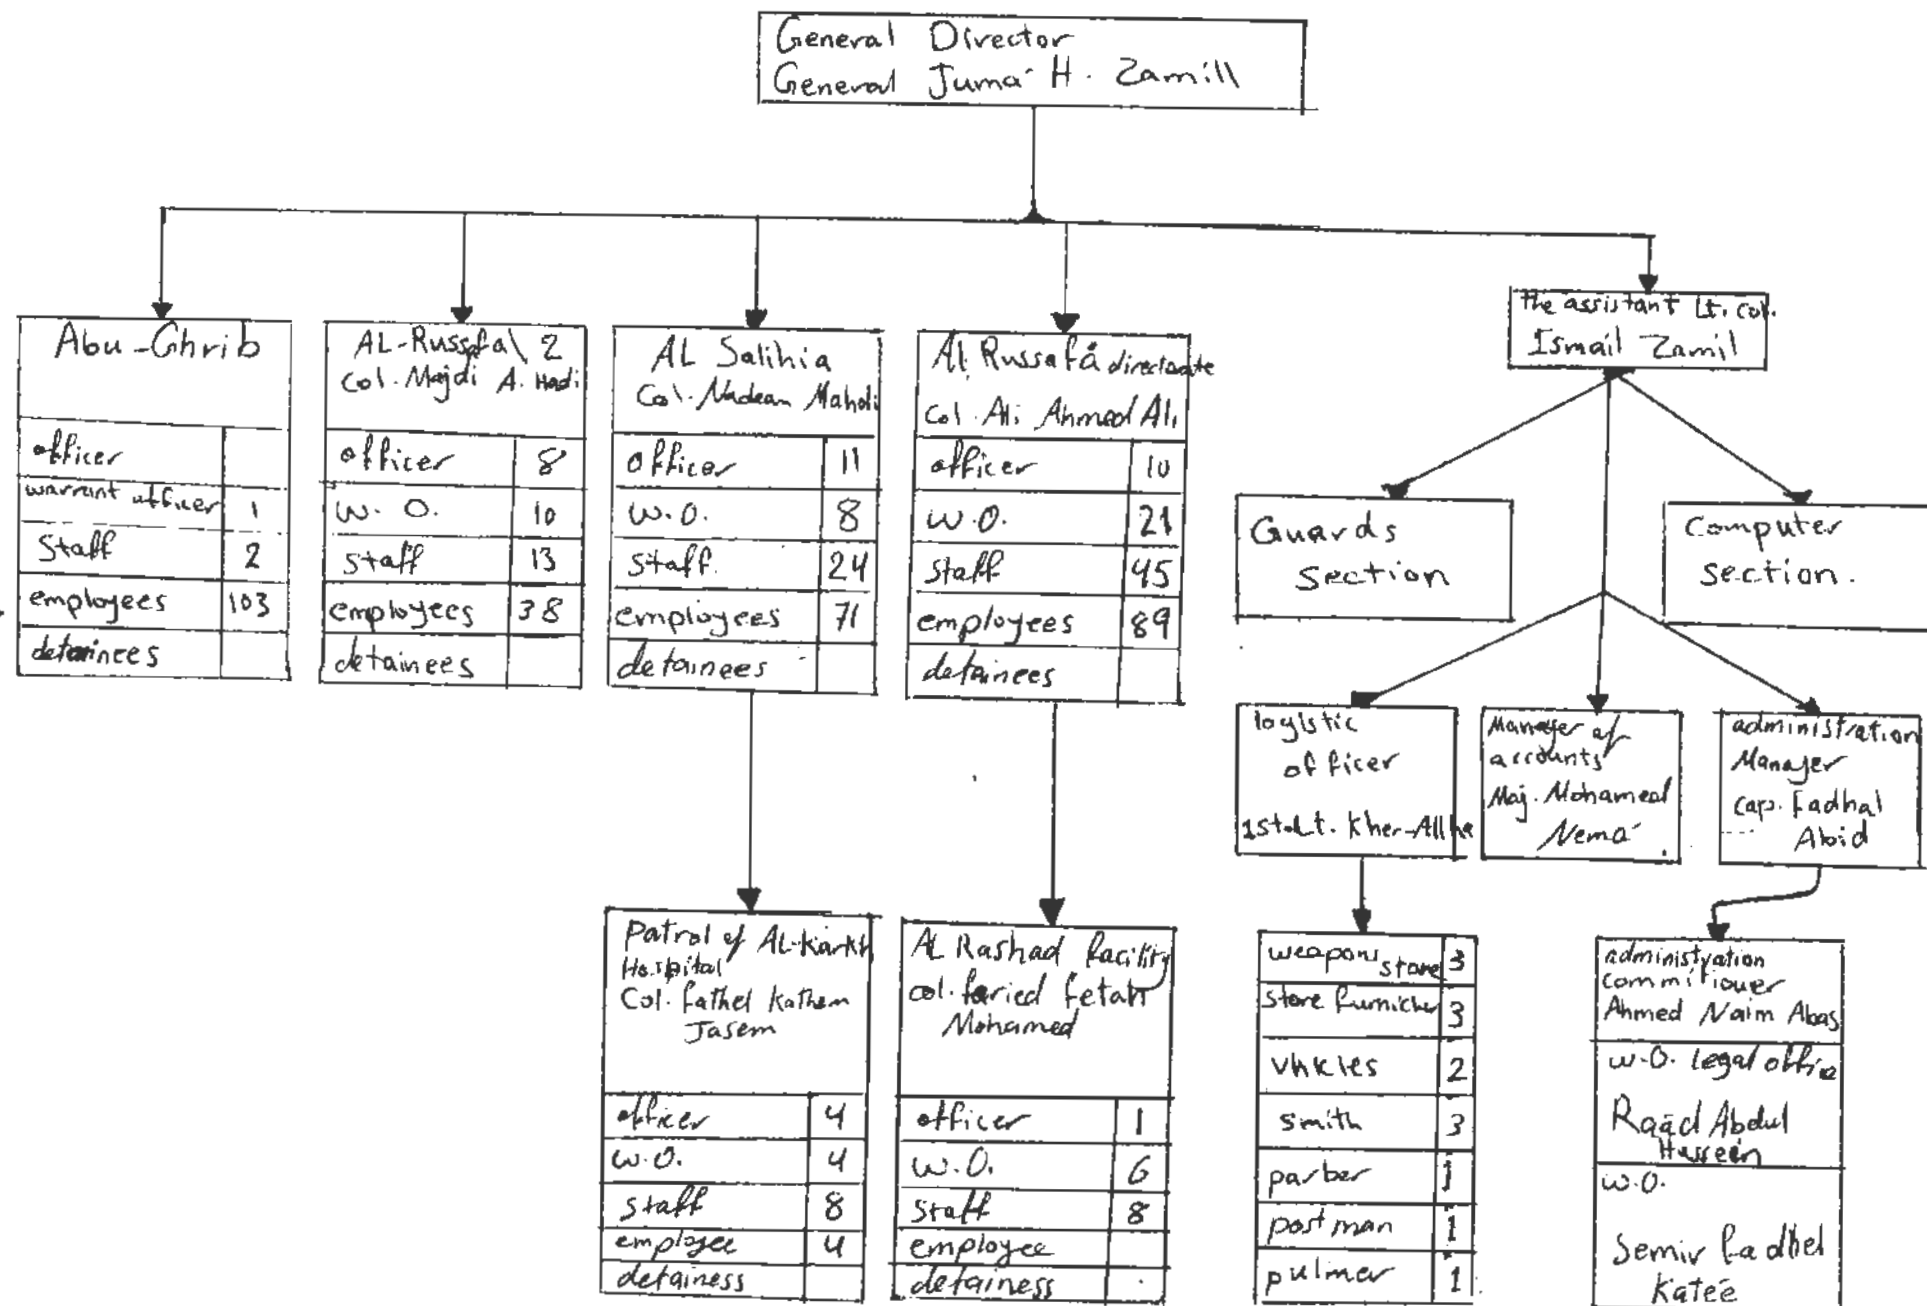 General Director
General Juma' H. Zamill
Abu-Ghrib
officer
warrant officer 1
Staff 2
employees 103
detainees
AL-Russafal 2
Col. Majdi A. Hadi
officer 8
w. O. 10
staff 13
employees 38
detainees
AL Salihia
Col. Nadean Mahdi
officer 11
W.O. 8
staff. 24
employees 71
detainees
Al Russafa directorate
Col. Ali Ahmed Ali
officer 10
W.O. 21
staff 45
employees 89
detainees
the assistant Lt. col.
Ismail Zamil
Guards
section
Computer
section.
logistic
officer
1st.Lt. Kher-Allha
Manager of
accounts
Maj. Mohamed
Nema'
administration
Manager
cap. Fadhal
Abid
Patrol of AL-Karkh
Hospital
Col. fathel Kathem
Jasem
officer 4
W.O. 4
staff 8
employee 4
detainess
AL Rashad facility
col. faried fetah
Mohamed
officer 1
W.O. 6
staff 8
employee
detainess
weapons store 3
store furnicher 3
vhicles 2
smith 3
parber 1
postman 1
pulmer 1
administration
commitiouer
Ahmed Naim Abas
w.O. legal office
Raad Abdul
Hussein
w.O.
Semir fadhel
Katee